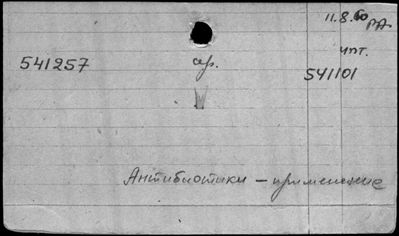 11.8.60 РА
чпт.
541257 ср. 541101
Антибиотики – применение